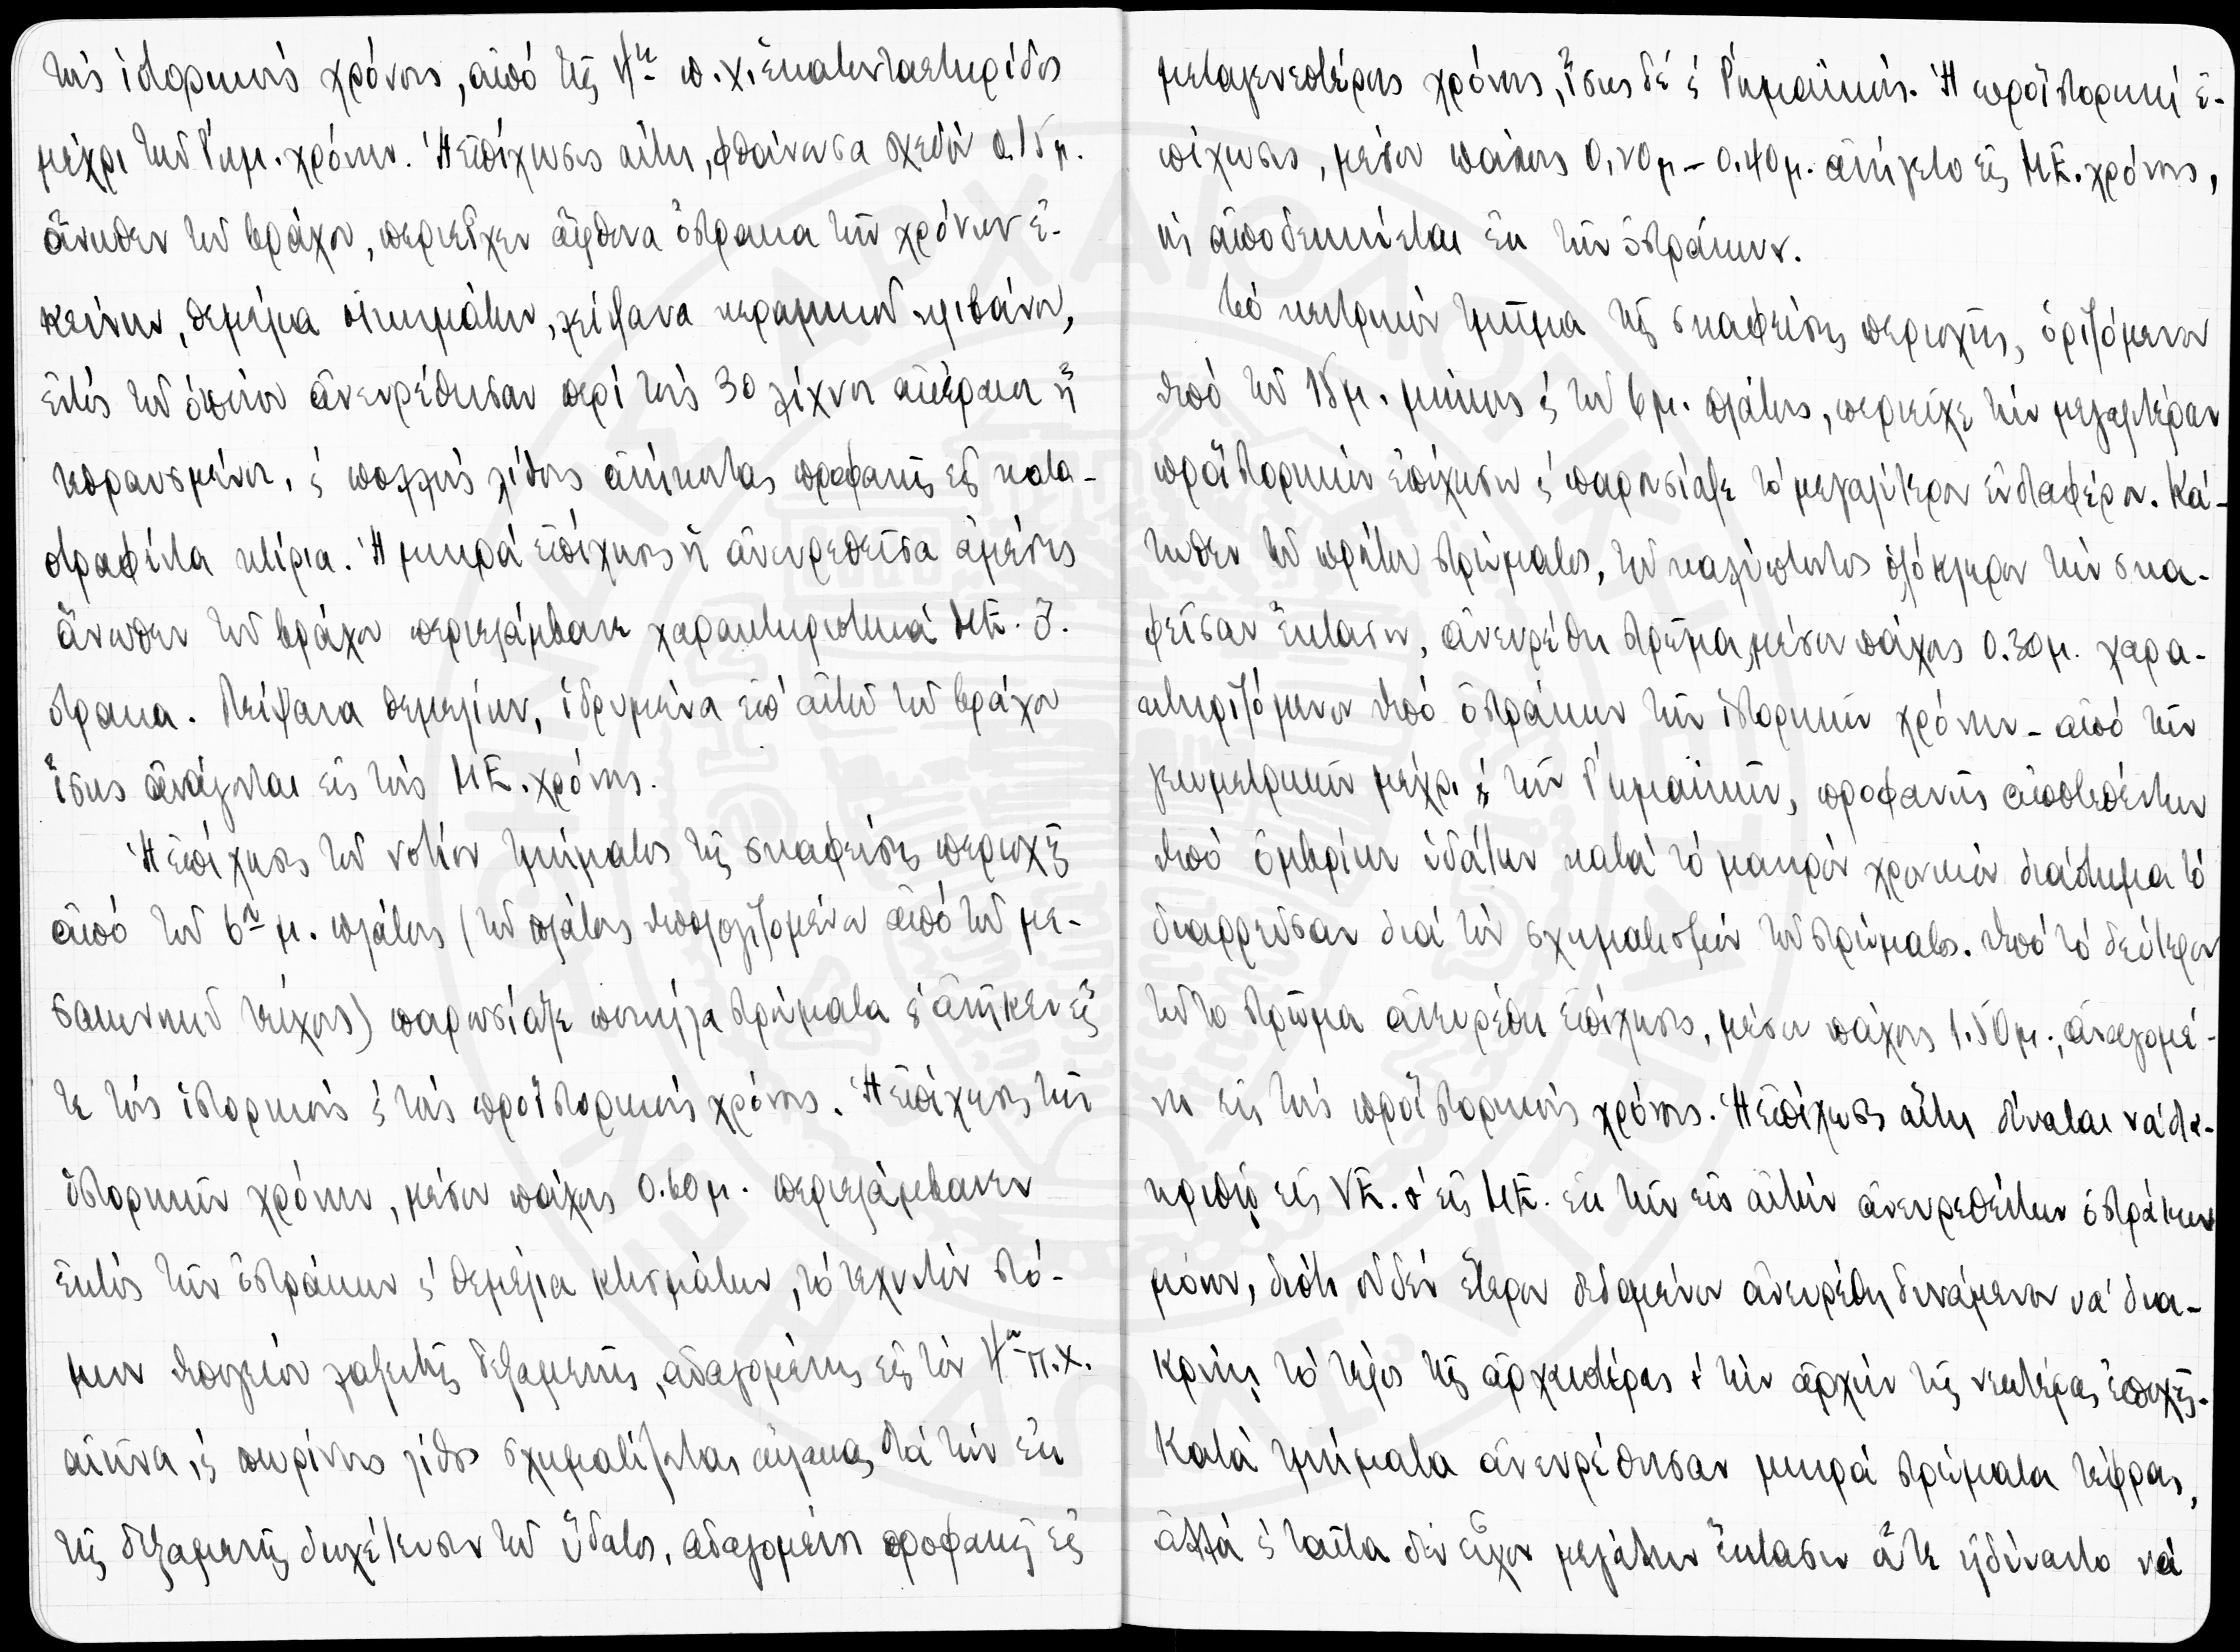 τούς ἱστορικούς χρόνους, ἀπό τῆς 4ης π.χ. ἑκατονταετηρίδος
μέχρι τῶν Ῥωμ. χρόνων. Ἡ ἐπίχωσις αὕτη, φθάνουσα σχεδόν 0.15 μ.
ἄνωθεν τοῦ βράχου, περιεῖχεν ἄφθονα ὄστρακα τῶν χρόνων ἐ-
κείνων, θεμέλια οἰκημάτων, λείψανα κεραμικοῦ κλιβάνου,
ἐντός τοῦ ὁποίου ἀνευρέθησαν περί τούς 30 λύχνοι ἀκέραιοι ἤ
τεθραυσμένοι, ϛ πολλούς λίθους ἀνήκοντας προφανῶς εἰς κατα-
στραφέντα κτίρια. Ἡ μικρά ἐπίχωσις ἡ ἀνευρεθεῖσα ἀμέσως
ἄνωθεν τοῦ βράχου περιελάμβανε χαρακτηριστικά ΜΕ. ὄ-
στρακα. Λείψανα θεμελίων, ἱδρυμένα ἐπ' αὐτοῦ τοῦ βράχου
ἴσως ἀνάγονται εἰς τούς ΜΕ. χρόνους.
Ἡ ἐπίχωσις τοῦ νοτίου τμήματος τῆς σκαφείσης περιοχῆς
ἀπό τοῦ 6ου μ. πλάτους (τοῦ πλάτους ὑπολογιζομένου ἀπό τοῦ με-
σαιωνικοῦ τείχους) παρουσίαζε ποικίλα στρώματα ϛ ἀνῆκεν εἰς
τε τούς ἱστορικούς ϛ τούς προϊστορικούς χρόνους. Ἡ ἐπίχωσις τῶν
ἱστορικῶν χρόνων, μέσου πάχους 0.60 μ. περιελάμβανεν
ἐκτός τῶν ὀστράκων ϛ θεμέλια κτισμάτων, τό τεχνητόν στό-
μιον ὑπογείου λαξευτῆς δεξαμενῆς, ἀναγομένης εἰς τόν 4ον π.χ.
αἰῶνα, ϛ πωρίνους λίθους σχηματίζοντας αὔλακας διά τήν ἐκ
τῆς δεξαμενῆς διοχέτευσιν τοῦ ὕδατος, ἀναγομένους προφανῶς εἰς
μεταγενεστέρους χρόνους, ἴσως δέ ϛ Ῥωμαϊκούς. Ἡ προϊστορική ἐ-
πίχωσις, μέσου πάχους 0,20μ – 0.40μ. ἀνήγετο εἰς ΜΕ. χρόνους,
ὡς ἀποδεικνύεται ἐκ τῶν ὀστράκων.
Τό κεντρικόν τμῆμα τῆς σκαφείσης περιοχῆς, ὁριζόμενον
ὑπό τοῦ 15μ. μήκους ϛ τοῦ 6μ. πλάτους, περιεῖχε τήν μεγαλυτέραν
προϊστορικήν ἐπίχωσιν ϛ παρουσίαζε τό μεγαλύτερον ἐνδιαφέρον. Κά-
τωθεν τοῦ πρώτου στρώματος, τοῦ καλύπτοντος ὁλόκληρον τήν σκα-
φεῖσαν ἔκτασιν, ἀνευρέθη στρῶμα, μέσου πάχους 0.30μ. χαρα-
κτηριζόμενον ὑπό ὀστράκων τῶν ἱστορικῶν χρόνων – ἀπό τῶν
γεωμετρικῶν μέχρι ϛ τῶν Ῥωμαϊκῶν, προφανῶς ἀποτεθέντων
ὑπό ὀμβρίων ὑδάτων κατά τό μακρόν χρονικόν διάστημα τό
διαρρεῦσαν διά τόν σχηματισμόν τοῦ στρώματος. Ὑπό τό δεύτερον
τοῦτο στρῶμα ἀνευρέθη ἐπίχωσις, μέσου πάχους 1.50μ., ἀναγομέ-
νη εἰς τούς προϊστορικούς χρόνους. Ἡ ἐπίχωσις αὕτη δύναται νά δια-
κριθῇ εἰς ΥΕ. & εἰς ΜΕ. ἐκ τῶν εἰς αὐτήν ἀνευρεθέντων ὀστράκων
μόνον, διότι οὐδέν ἕτερον δεδομένον ἀνευρέθη δυνάμενον νά δια-
κρίνῃ τό τέλος τῆς ἀρχαιοτέρας & τήν ἀρχήν τῆς νεωτέρας ἐποχῆς.
Κατά τμήματα ἀνευρέθησαν μικρά στρώματα τέφρας,
ἀλλά ϛ ταῦτα δέν εἶχον μεγάλην ἔκτασιν ὥστε ἠδύναντο νά